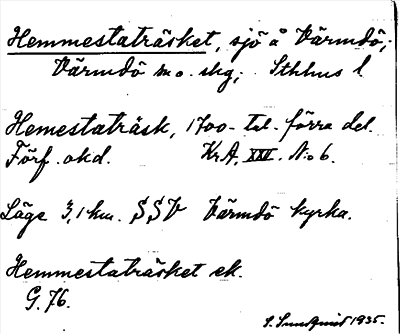 Hemmestaträsket, sjö å Värmdö;
Värmdö m. o. skg; Sthlms l
Hemestaträsk, 1700-tal. förra del.
Förf. okd. KrA, XXI. N:o 6.
Läge 3,1 km. SSV Värmdö kyrka.
Hemmestaträsket ek.
G. 76.
S. Sundqvist 1935.